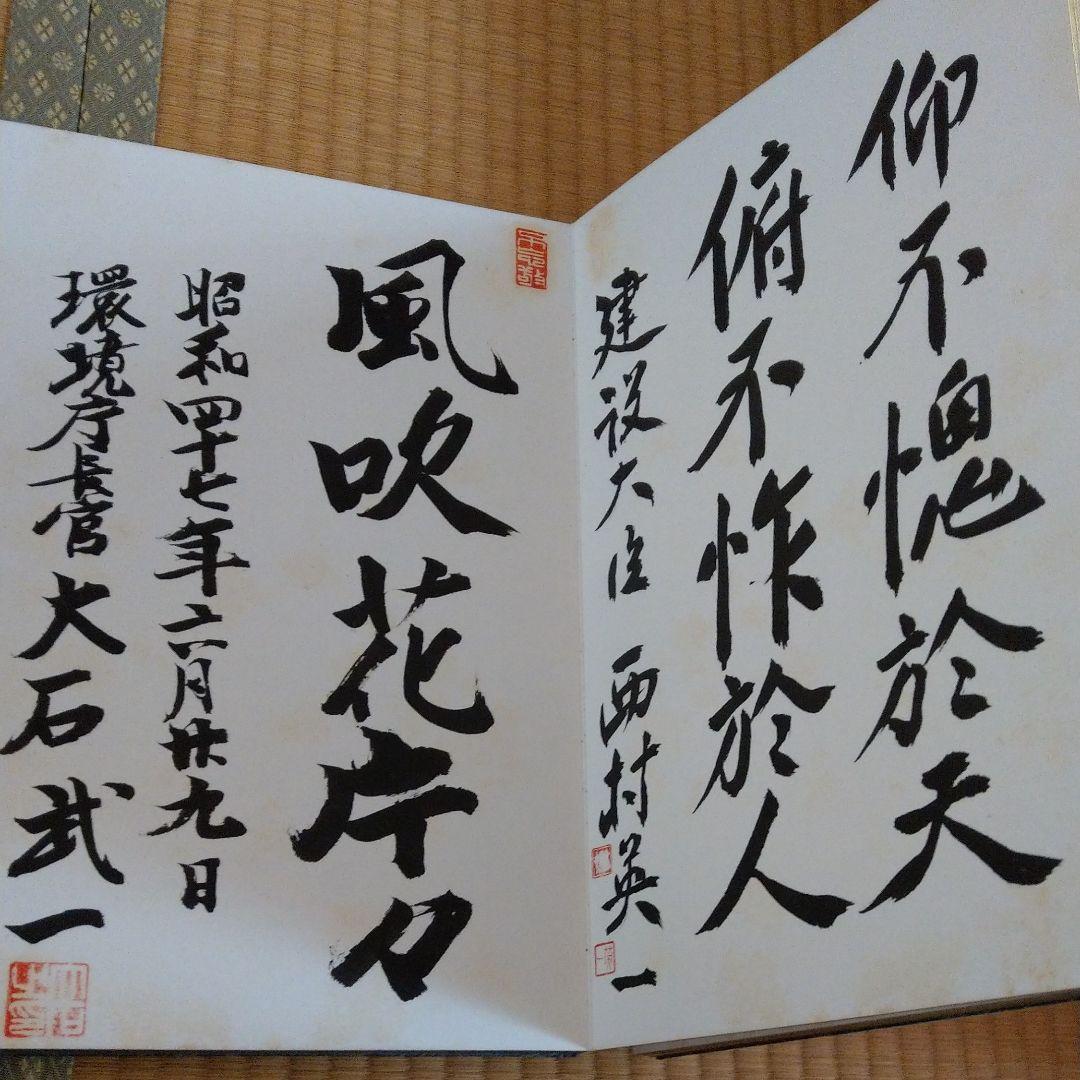 仰不愧於天
俯不怍於人
建设大臣 西村英一
風吹花片々
昭和四十七年六月廿九日
環境庁長官 大石武一